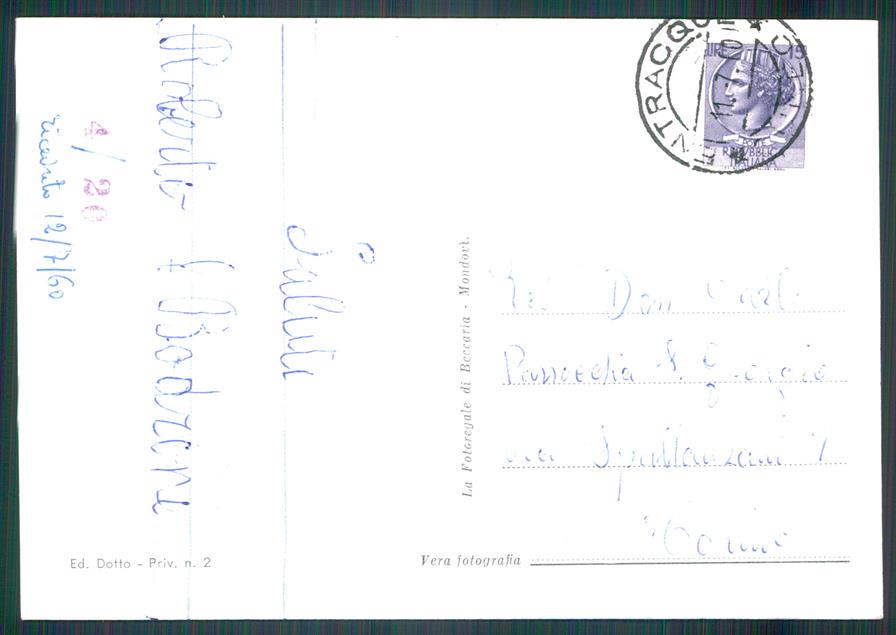 Saluti
Roberto
ricevuto 12/7/60
4/20
ENTRACQUE
11.7.60
LIRE 15
POSTE
REPVBBLICA
ITALIANA
Don Carlo
Parrocchia S. Giorgio
via Spallanzani 7
Torino
La Fotoregale di Beccaria - Mondovì.
Ed. Dotto - Priv. n. 2
Vera fotografia